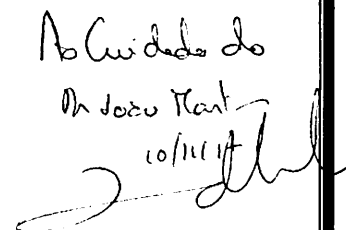 Ao Cuidado do
Dr João Mart
10/11/17